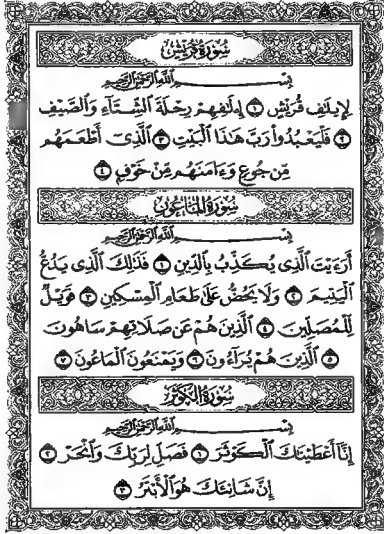 سُورَةُ قُرَيْشٍ
بِسْمِ اللَّهِ الرَّحْمَٰنِ الرَّحِيمِ
لِإِيلَٰفِ قُرَيْشٍ ١ إِۦلَٰفِهِمْ رِحْلَةَ الشِّتَآءِ وَالصَّيْفِ
٢ فَلْيَعْبُدُوا۟ رَبَّ هَٰذَا الْبَيْتِ ٣ الَّذِىٓ أَطْعَمَهُم
مِّن جُوعٍ وَءَامَنَهُم مِّنْ خَوْفٍ ٤
سُورَةُ الْمَاعُونِ
بِسْمِ اللَّهِ الرَّحْمَٰنِ الرَّحِيمِ
أَرَءَيْتَ الَّذِى يُكَذِّبُ بِالدِّينِ ١ فَذَٰلِكَ الَّذِى يَدُعُّ
الْيَتِيمَ ٢ وَلَا يَحُضُّ عَلَىٰ طَعَامِ الْمِسْكِينِ ٣ فَوَيْلٌ
لِّلْمُصَلِّينَ ٤ الَّذِينَ هُمْ عَن صَلَاتِهِمْ سَاهُونَ
٥ الَّذِينَ هُمْ يُرَآءُونَ ٦ وَيَمْنَعُونَ الْمَاعُونَ ٧
سُورَةُ الْكَوْثَرِ
بِسْمِ اللَّهِ الرَّحْمَٰنِ الرَّحِيمِ
إِنَّآ أَعْطَيْنَٰكَ الْكَوْثَرَ ١ فَصَلِّ لِرَبِّكَ وَانْحَرْ ٢
إِنَّ شَانِئَكَ هُوَ الْأَبْتَرُ ٣